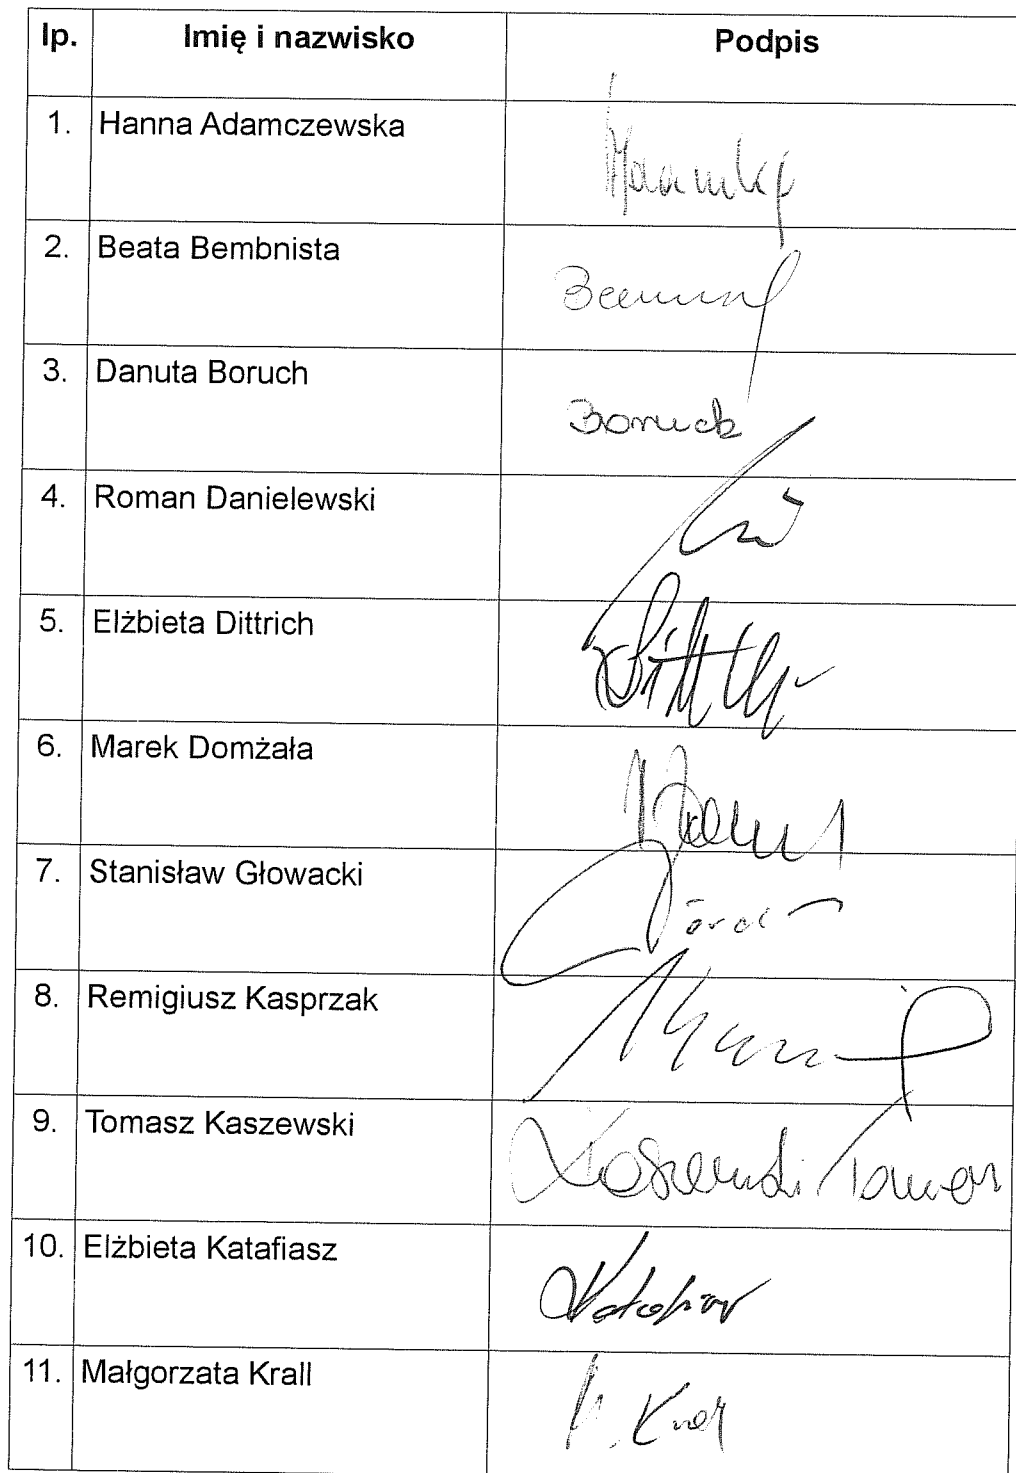 lp. Imię i nazwisko Podpis
1. Hanna Adamczewska
2. Beata Bembnista
3. Danuta Boruch Boruch
4. Roman Danielewski
5. Elżbieta Dittrich
6. Marek Domżała
7. Stanisław Głowacki
8. Remigiusz Kasprzak
9. Tomasz Kaszewski Kaszewski Tomasz
10. Elżbieta Katafiasz Katafiasz
11. Małgorzata Krall M. Krall